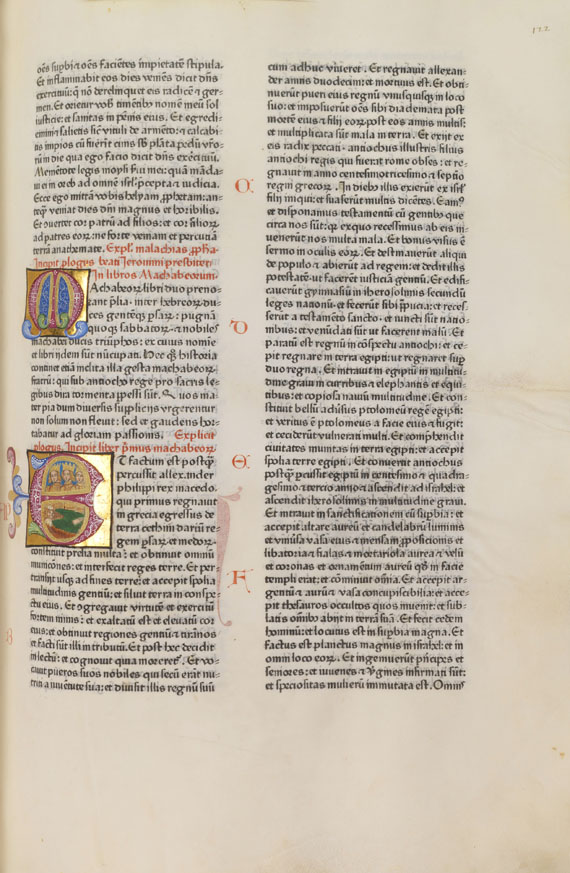 122
oēs supbi ⁊ oēs faciētes impietatē stipula.
Et inflammabit eos dies veniēs dicit dñs
exercituū: q̄ nō derelinquet eis radicē ⁊ ger-
men. Et orietur vob timētibꝰ nomē meū sol
iusticie: et sanitas in pēnis eius. Et egredi-
emini ⁊ salietis sic̄ vituli de armēto: ⁊ calcabi-
tis impios cū fuerīt cinis sb̄ plāta pedū vr̄o-
rū in die qua ego facio dicit dñs exercituū.
Memētote legis moysi serui mei: quā māda-
ui ei in oreb ad omnē isrl̓: p̄cepta ⁊ iudicia.
Ecce ego mittā vobis helyam ꝓphetam: an-
teq̄ veniat dies dn̄i magnus et horribilis.
Et ꝯuertet cor patrū ad filios: et cor filioꝝ
ad patres eoꝝ: ne forte veniam et percutiā
terrā anathemate. Expl̓. malachias ꝓpha.
Incipit plogus beati Ieronimi presbiteri
In libros Machabeorum.
Machabeorū libri duo preno-
tant plia. inter hebreorū du-
ces gentēqꝫ psaꝝ: pugnā
quoqꝫ sabbatoꝝ: ⁊ nobiles
machabei ducis triūphos: ex cuius nomie
et libri ijdem sūt nūcupati. Hec qꝫ historia
continet etiā inclita illa gesta machabeoꝝ
fratrū: qui sub antiocho rege pro sacris le-
gibus dira tormenta ppessi sūt. Quos ma-
ter pia dum diuersis supplicijs vrgerentur
non solum non fleuit: sed et gaudens hor-
tabatur ad gloriam passionis. Explicit
plogus. Incipit liber pm̄us machabeoꝝ
Et factum est postq̄
percussit allexander
philippi rex macedo.
qui primus regnauit
in grecia egressus de
terra cethim dariū re-
gem psaꝝ et medoꝝ.
constituit prelia multa: et obtinuit omniū
municōnes: et interfecit reges terre. Et per-
transijt usqꝫ ad fines terre: et accepit spolia
multitudinis gentiū: et siluit terra in conspe-
ctu eius. Et ꝯgregauit virtutē et exercitū
fortem nimis: et exaltatū est et eleuatū cor
eius: et obtinuit regiones gentiū et tirānos
et facti sūt illi in tributū. Et post hec decidit
in lectū: et cognouit quia moreret̄. Et vo-
cauit pueros suos nobiles qui secū erāt nu-
triti a iuuentute sua: et diuisit illis regnū suū
cum adhuc viueret. Et regnauit allexan-
der annis duodecim: et mortuus est. Et obti-
nuerūt pueri eius regnū vnusquisqꝫ in loco
suo: et imposuerūt oēs sibi diademata post
mortē eius ⁊ filij eoꝝ post eos annis multis:
et multiplicata sūt mala in terra. Et exijt ex
eis radix peccati. antiochus illustris filius
antiochi regis qui fuerat rome obses: et re-
gnauit in anno centesimotricesimo ⁊ septio
regni grecoꝝ. In diebꝰ illis exierūt ex isrl̓
filij iniqui: et suaserūt multis dicētes. Eamꝰ
et disponamus testamētū cū gentibꝰ que
circa nos sūt: q̄ exquo recessimus ab eis in-
uenerūt nos multa mala. Et bonus visus ē
sermo in oculis eoꝝ. Et destinauerūt aliqui
de populo ⁊ abierūt ad regem: et dedit illis
potestatē ut facerēt iusticiā gentiū. Et edifi-
cauerūt gymnasiū in iherosolimis secundū
leges nationū: et fecerūt sibi p̄pucia: et reces-
serūt a testamēto sancto. et iuncti sūt natio-
nibus: et venūdati sūt ut facerent malū. Et
paratū est regnū in cōspectu antiochi: et ce-
pit regnare in terra egipti: ut regnaret sup
duo regna. Et intrauit in egiptū in multitu-
dine graui in curribus ⁊ elephantis et equi-
tibus: et copiosa nauiū multitudine. Et con-
stituit bellū aduersus ptolomeū regē egipti:
et veritus ē ptolomeus a facie eius ⁊ fugit:
et ceciderūt vulnerati multi. Et comprehendit
ciuitates munitas in terra egipti: et accepit
spolia terre egipti. Et conuertit antiochus
postq̄ percussit egiptū in centesimo ⁊ quadra-
gesimo ⁊ tercio anno: ⁊ ascendit ad israhel: et
ascendit iherosolimis in multitudine graui.
Et intrauit in sanctificationem cū supbia: et
accepit altare aureū et candelabrū luminis
et vniuersa vasa eius ⁊ mensam ꝓposicionis et
libatoria ⁊ fialas ⁊ mortariola aurea ⁊ velū
et coronas et ornamentum aureū qd̓ in facie
templi erat: et cōminuit omīa. Et accepit ar-
gentū ⁊ aurū ⁊ vasa concupiscibilia: et acce-
pit thesauros occultos quos inuenit: et sub-
latis omībꝰ abijt in terrā suā. Et fecit cedem
hominū: et locutus est in supbia magna. Et
factus est planctus magnus in israhel: et in
omni loco eoꝝ. Et ingemuerūt pn̄cipes et
seniores: et iuuenes ⁊ v̓gines infirmati sūt:
et speciositas mulierū immutata est. Omnis